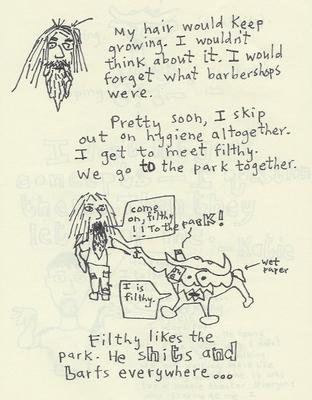 My hair would keep
growing. I wouldn't
think about it. I would
forget what barbershops
were.
Pretty soon, I skip
out on hygiene altogether.
I get to meet filthy.
We go to the park together.
come
on, filthy
!! To the park!
wet
paper
I is
filthy.
Filthy likes the
park. He shits and
barfs everywhere...